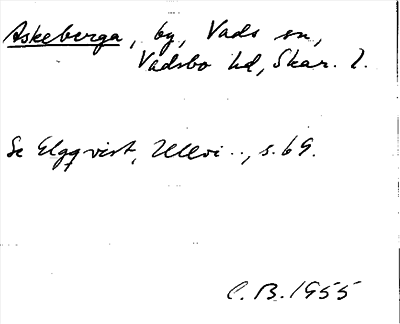 Askeberga, by, Vads sn,
Vadsbo hd, Skar. l.
Se Elgqvist, Ullvi.., s. 69.
C. B. 1955